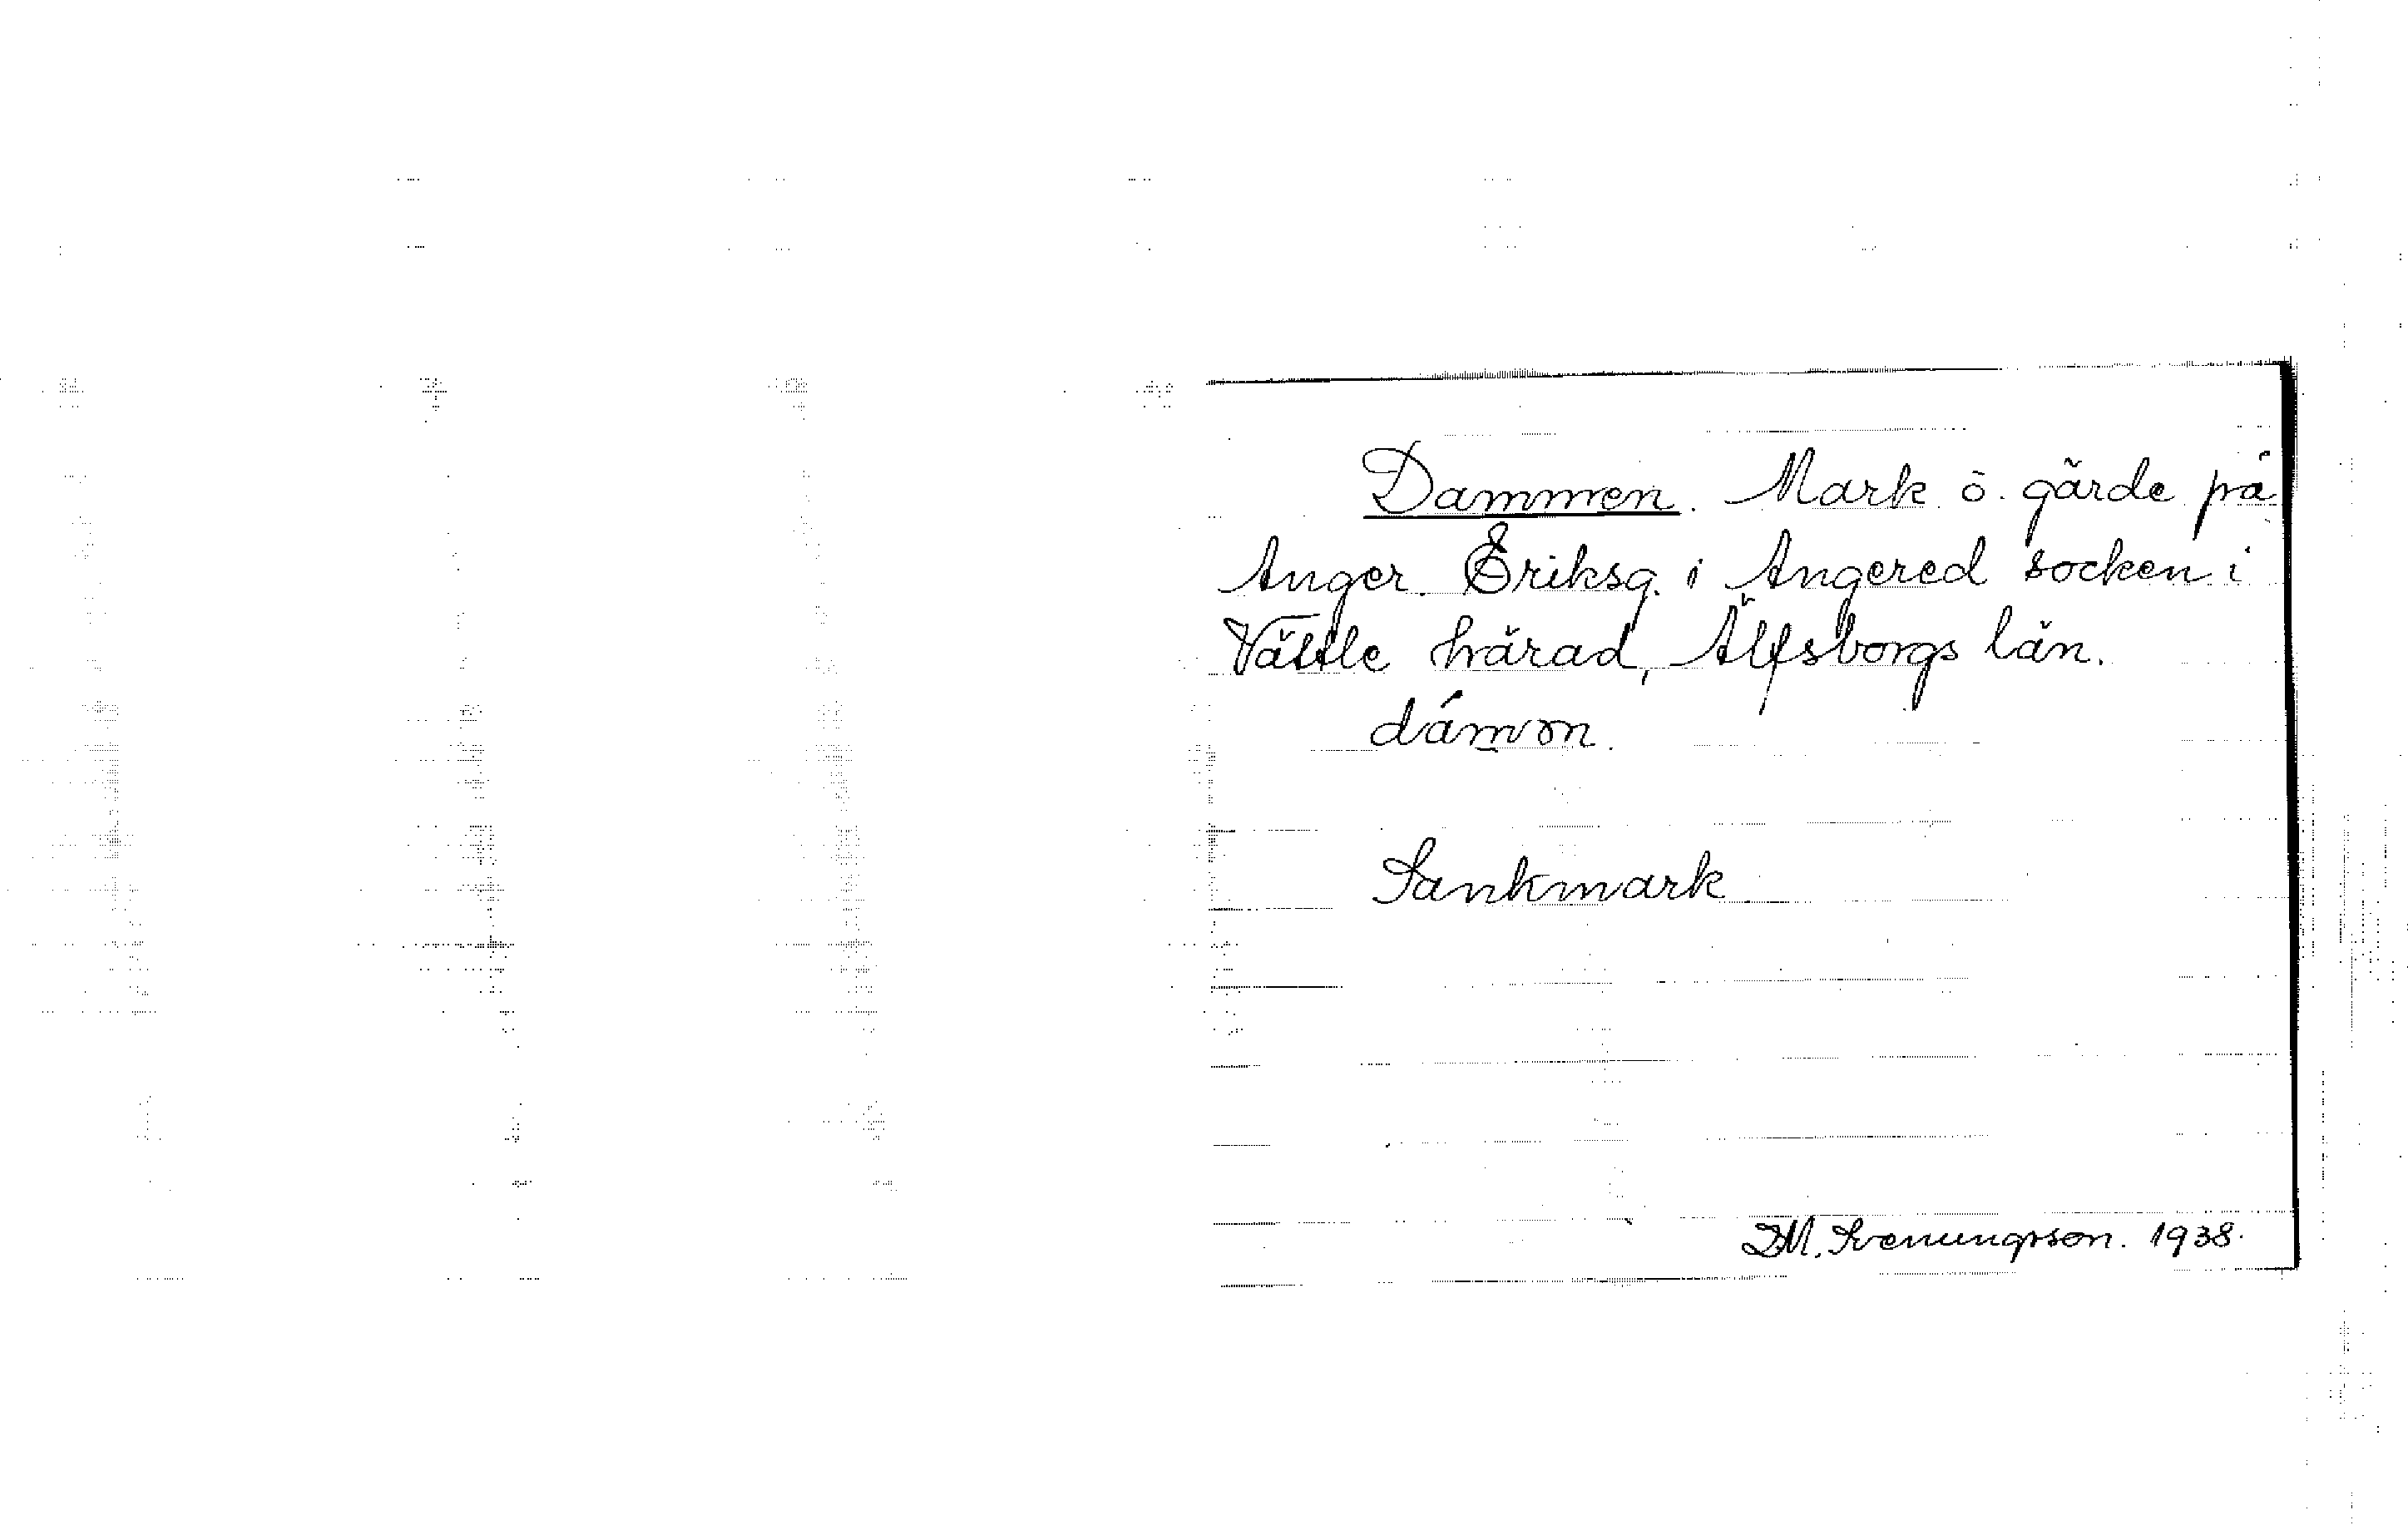 Dammen. Mark o. gärde på
Anger. Eriksg. i Angered socken i
Vättle härad, Älfsborgs län.
dámon.
Sankmark
D.M. Svenungsson. 1938.